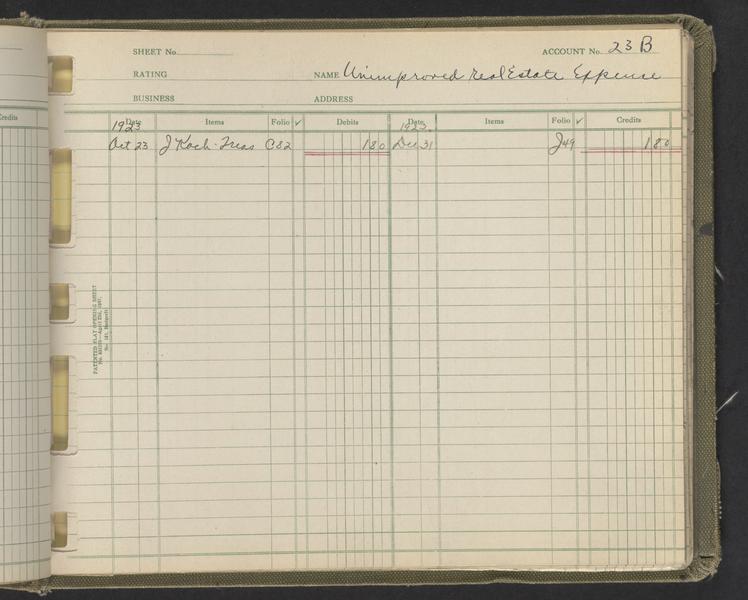 SHEET No.
ACCOUNT No. 23 B
RATING
NAME Unimproved Real Estate Expense
BUSINESS
ADDRESS
Date Items Folio ✓ Debits Date Items Folio ✓ Credits
1923 1923
Oct 23 J Koch Treas C82 180 Dec 31 J49 180
Credits
PATENTED FLAT OPENING SHEET